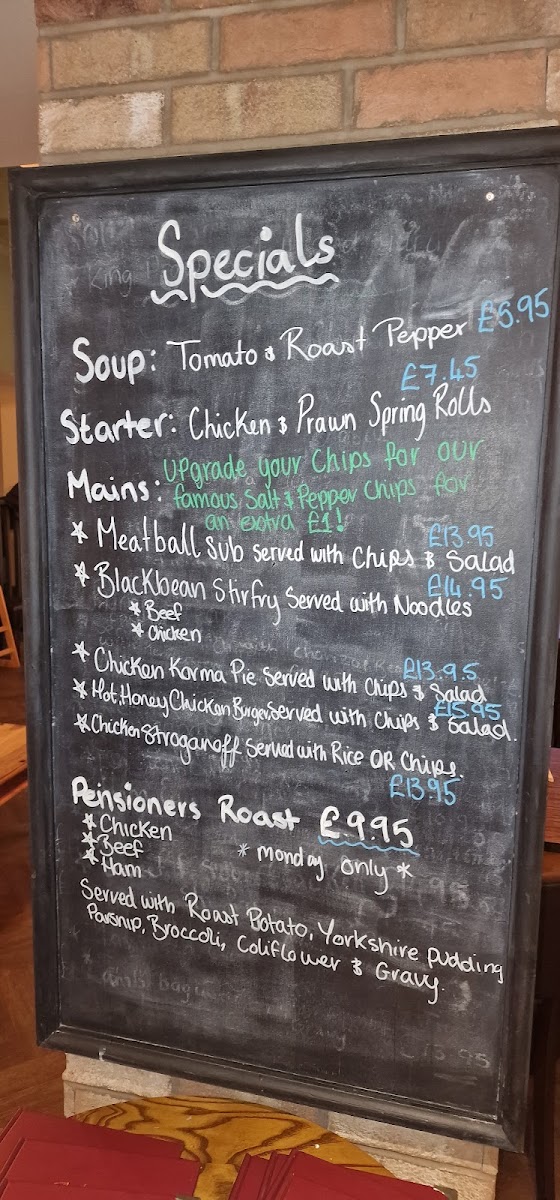 Specials
Soup: Tomato & Roast Pepper £5.95
£7.45
Starter: Chicken & Prawn Spring Rolls
Mains: Upgrade your Chips for our
famous Salt & Pepper Chips for
an extra £1!
£13.95
* Meatball Sub Served with Chips & Salad
£14.95
* Blackbean Stirfry Served with Noodles
* Beef
* Chicken
£13.95
* Chicken Korma Pie Served with Chips & Salad
£15.95
* Hot Honey Chicken Burger Served with Chips & Salad.
* Chicken Stroganoff Served with Rice OR Chips.
£13.95
Pensioners Roast £9.95
* Chicken
* Beef
* Ham
* monday only *
Served with Roast Potato, Yorkshire pudding
Parsnip, Broccoli, Coliflower & Gravy.